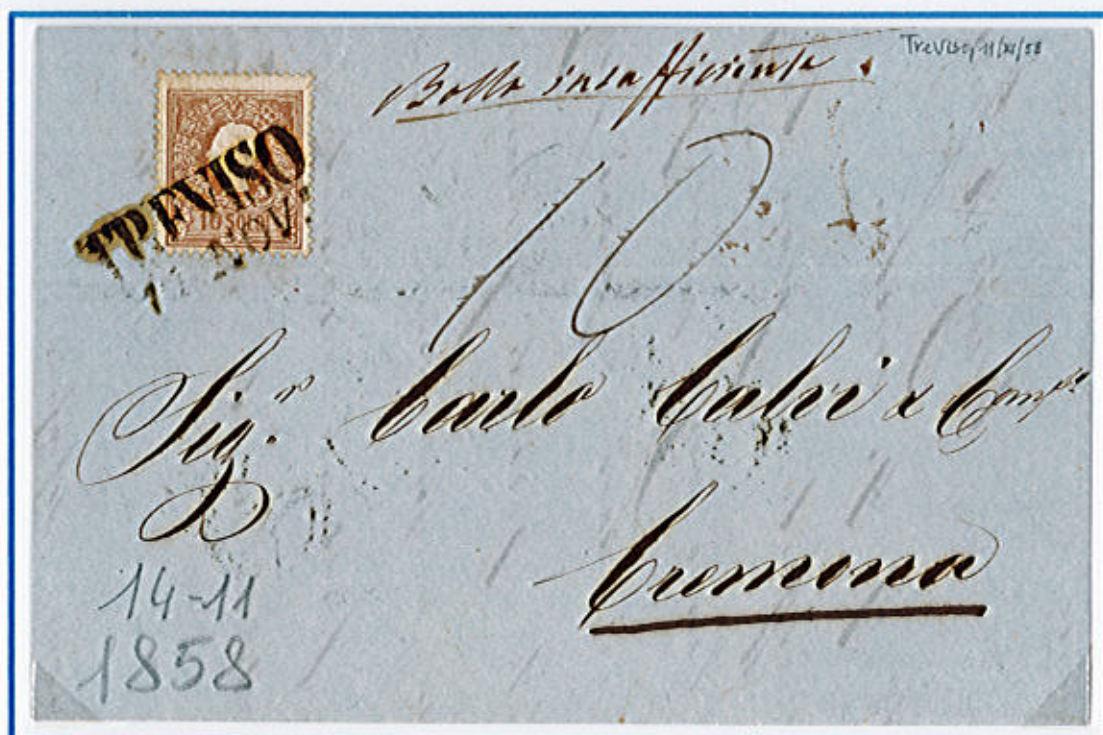 Treviso, 11/XI/58
Bollo insufficiente.
TREVISO
NOV.
10 SOLDI
10
Sig.r Carlo Calvi & Comp.
Cremona
14-11
1858